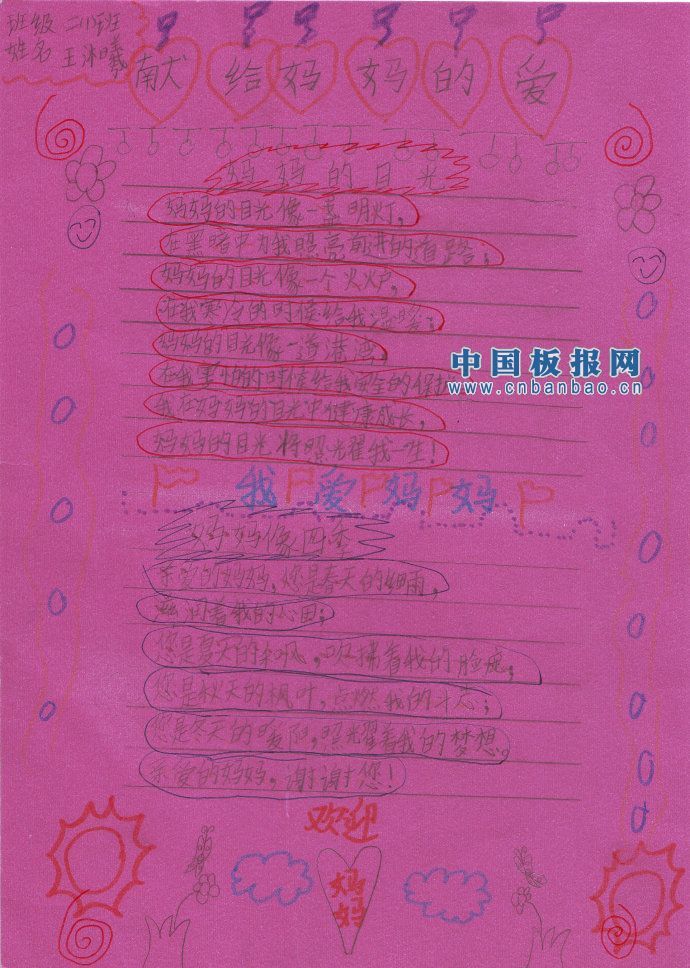 班级 二(1)班
姓名 王沐曦
献给妈妈的爱
妈妈的目光
妈妈的目光像一盏明灯,
在黑暗中为我照亮前进的道路;
妈妈的目光像一个火炉,
在我寒冷的时候给我温暖;
妈妈的目光像一道港湾,
在我害怕的时候给我安全的保护
我在妈妈的目光中健康成长,
妈妈的目光将照光耀我一生!
中国板报网
www.cnbanbao.cn
我爱妈妈
妈妈像四季
亲爱的妈妈,您是春天的细雨,
滋润着我的心田;
您是夏天的和风,吹拂着我的脸庞;
您是秋天的枫叶,点燃我的斗志;
您是冬天的暖阳,照光耀着我的梦想。
亲爱的妈妈,谢谢您!
欢迎
妈妈